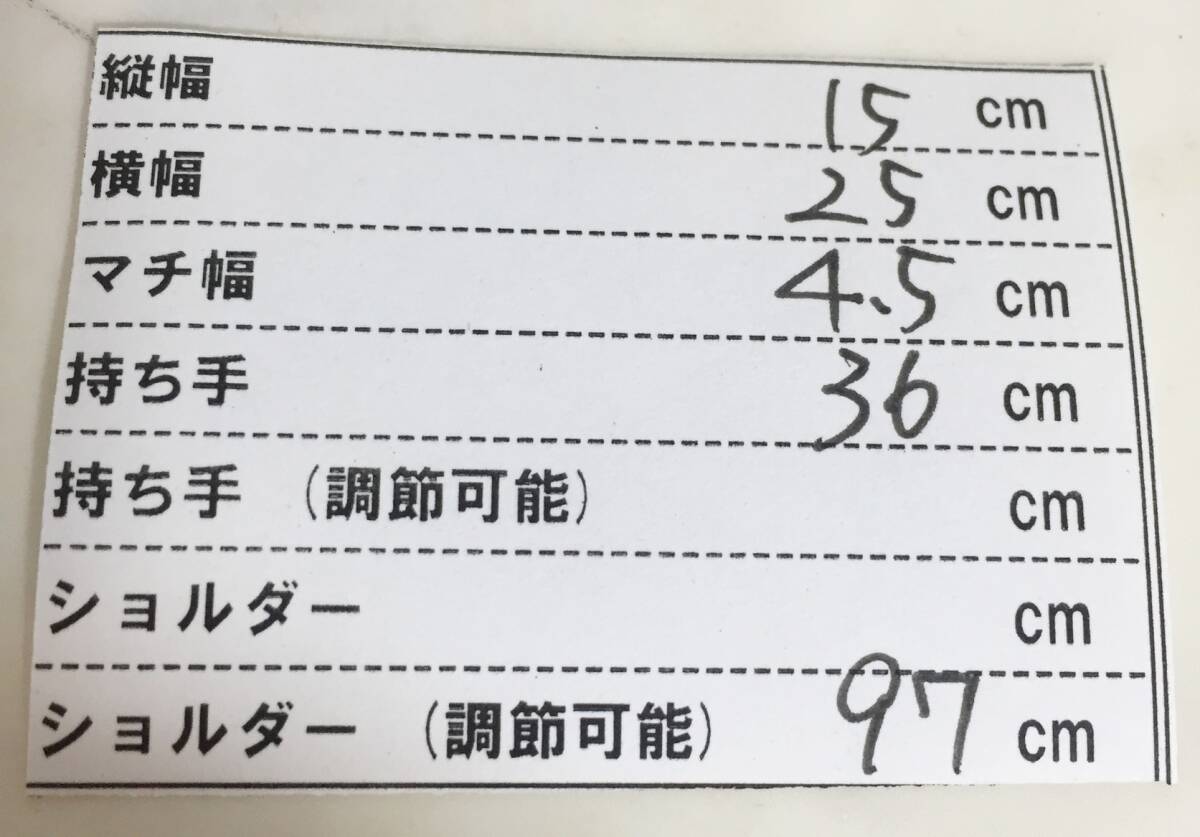 縦幅 15 cm
横幅 25 cm
マチ幅 4.5 cm
持ち手 36 cm
持ち手 (調節可能) cm
ショルダー cm
ショルダー (調節可能) 97 cm